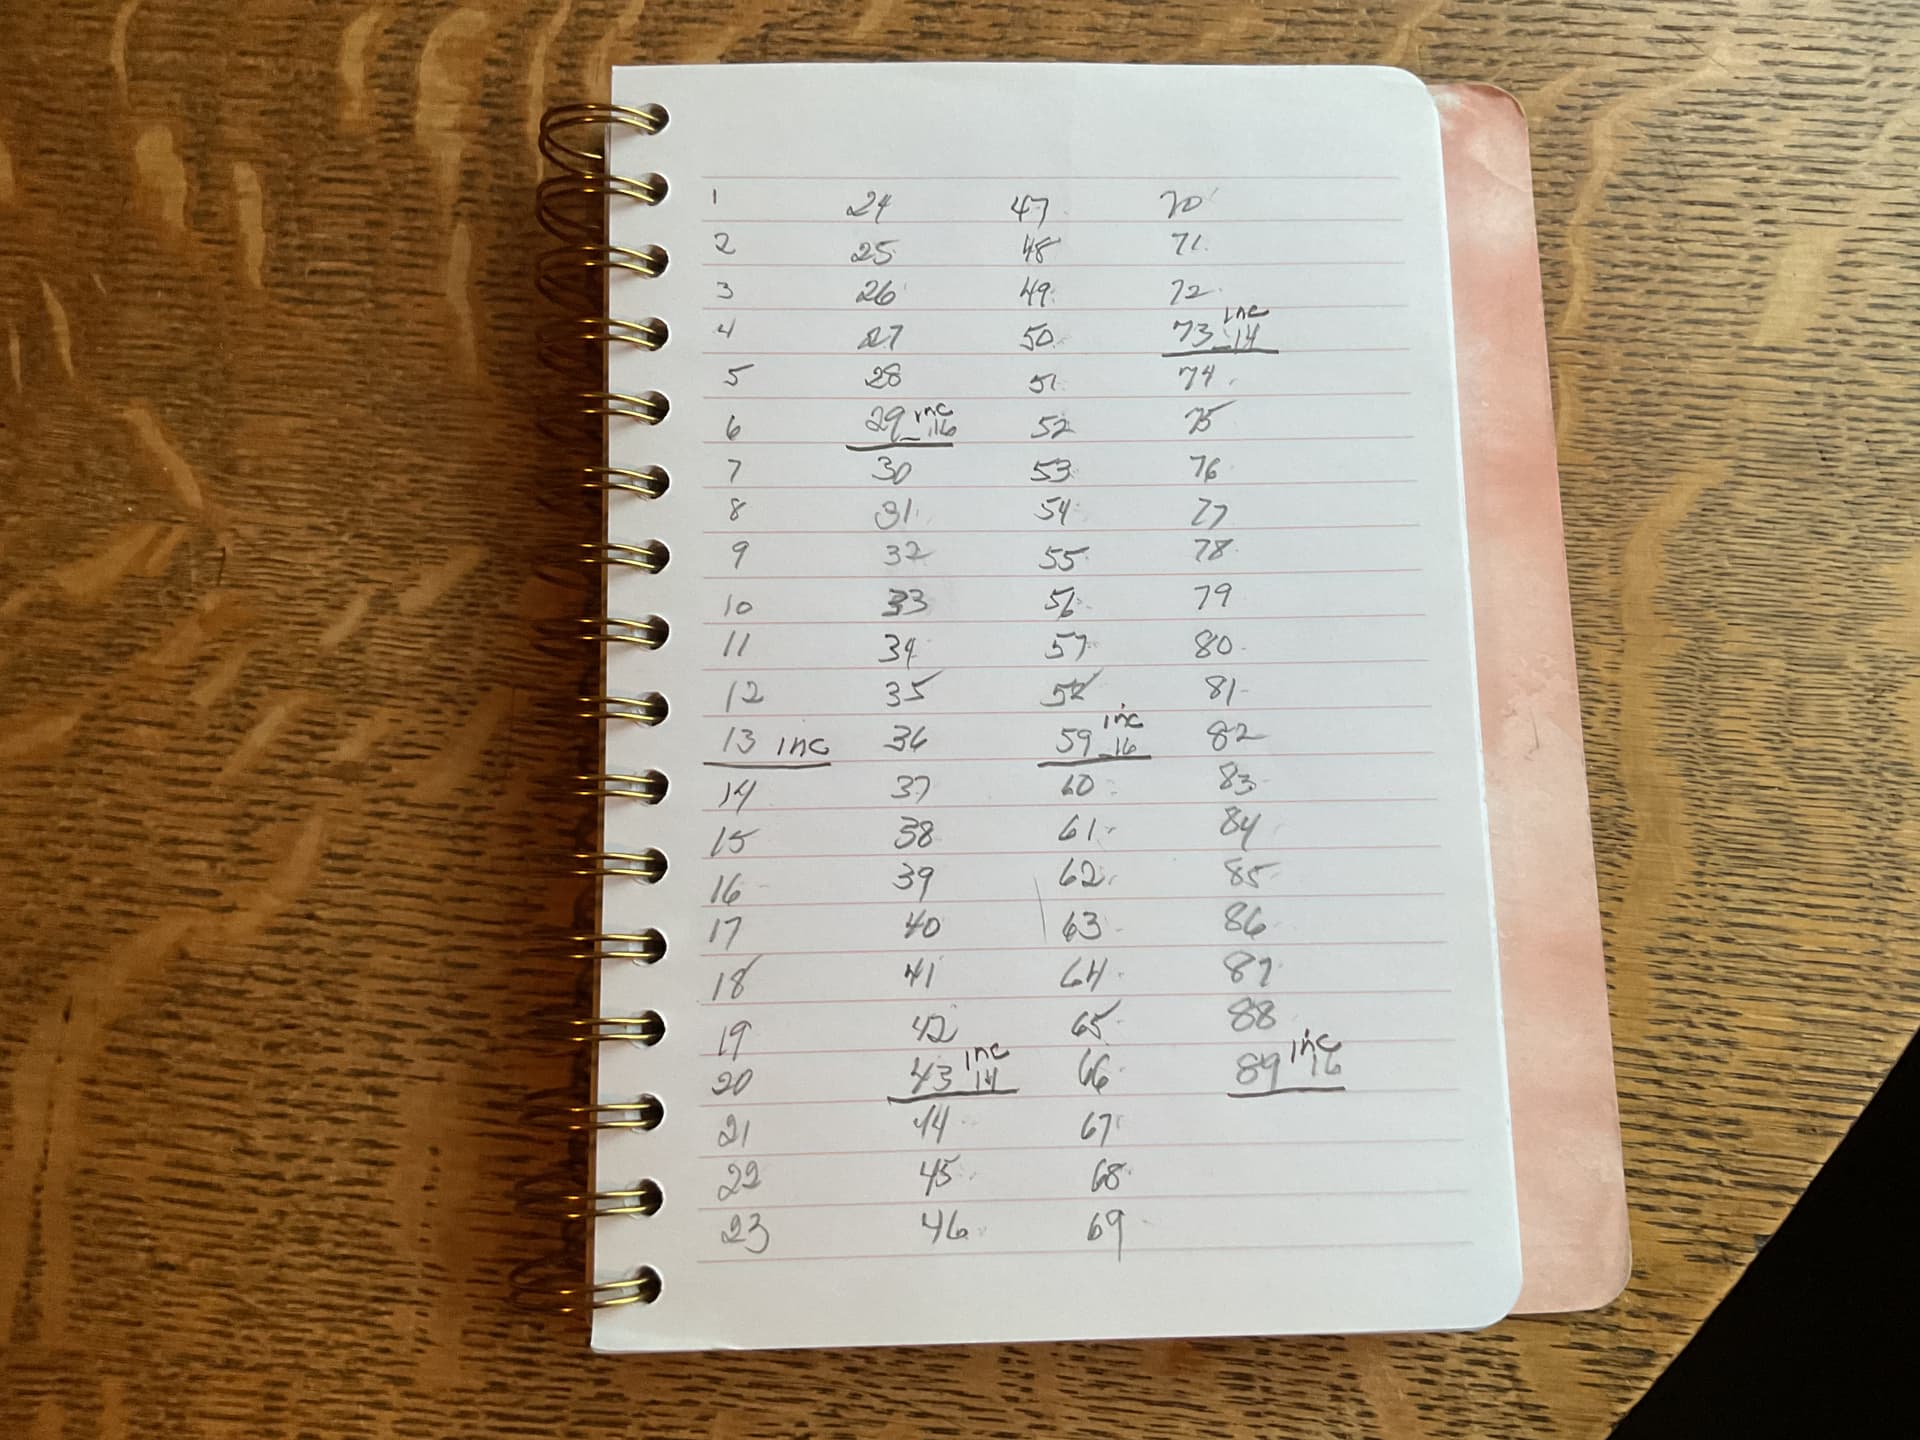 1 24 47 70
2 25 48 71
3 26 49 72
4 27 50 73 inc 14
5 28 51 74
6 29 inc 16 52 75
7 30 53 76
8 31 54 77
9 32 55 78
10 33 56 79
11 34 57 80
12 35 58 81
13 inc 36 59 inc 16 82
14 37 60 83
15 38 61 84
16 39 62 85
17 40 63 86
18 41 64 87
19 42 65 88
20 43 inc 14 66 89 inc 16
21 44 67
22 45 68
23 46 69